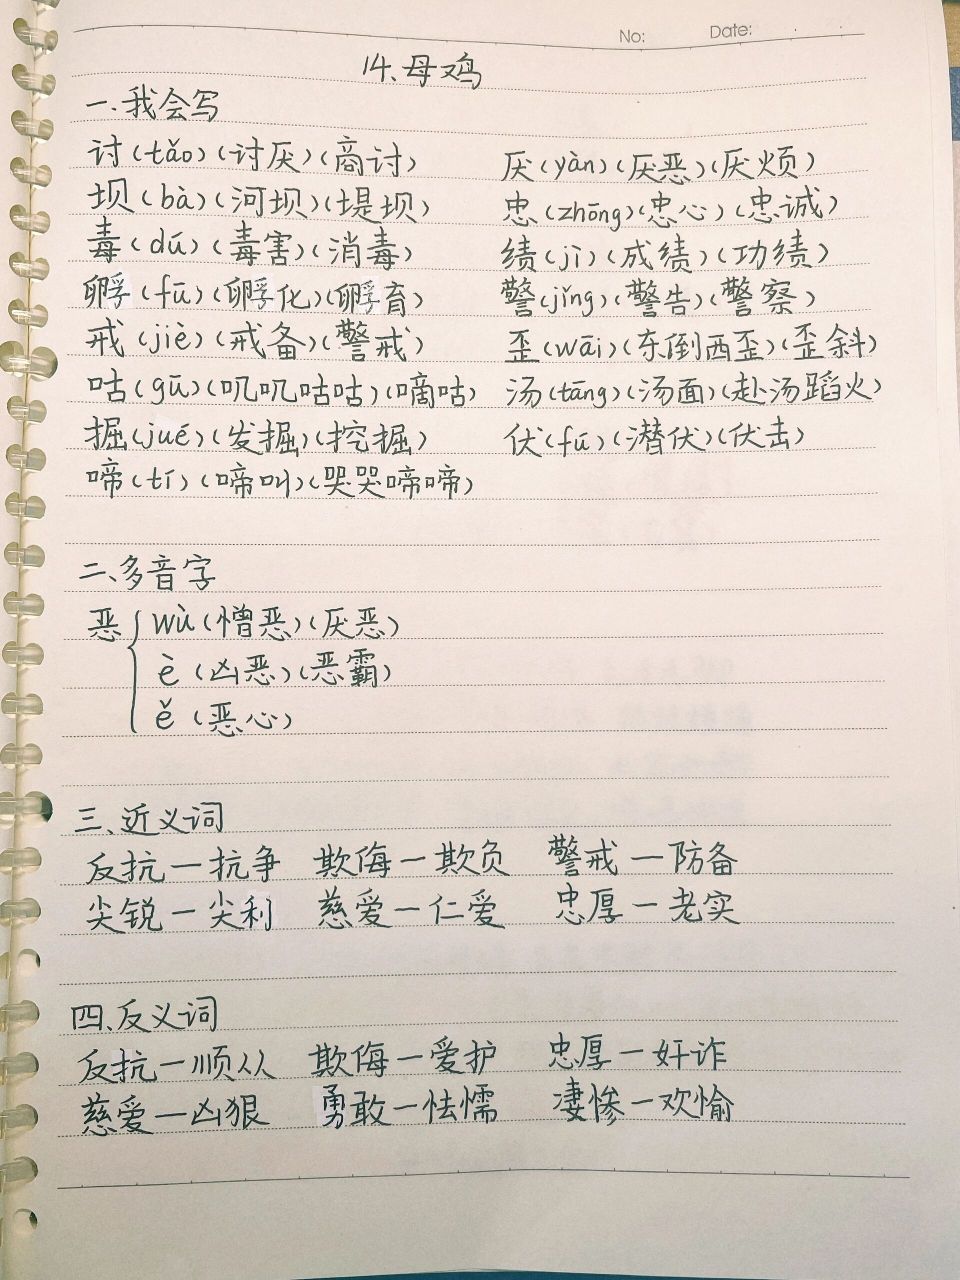 No:    Date:
14、母鸡
一.我会写
讨(tǎo)(讨厌)(商讨)    厌(yàn)(厌恶)(厌烦)
坝(bà)(河坝)(堤坝)    忠(zhōng)(忠心)(忠诚)
毒(dú)(毒害)(消毒)    绩(jì)(成绩)(功绩)
孵(fū)(孵化)(孵育)    警(jǐng)(警告)(警察)
戒(jiè)(戒备)(警戒)    歪(wāi)(东倒西歪)(歪斜)
咕(gū)(叽叽咕咕)(嘀咕)    汤(tāng)(汤面)(赴汤蹈火)
掘(jué)(发掘)(挖掘)    伏(fú)(潜伏)(伏击)
啼(tí)(啼叫)(哭哭啼啼)
二、多音字
恶{wù(憎恶)(厌恶)
è(凶恶)(恶霸)
ě(恶心)
三、近义词
反抗一抗争    欺侮一欺负    警戒一防备
尖锐一尖利    慈爱一仁爱    忠厚一老实
四、反义词
反抗一顺从    欺侮一爱护    忠厚一奸诈
慈爱一凶狠    勇敢一怯懦    凄惨一欢愉